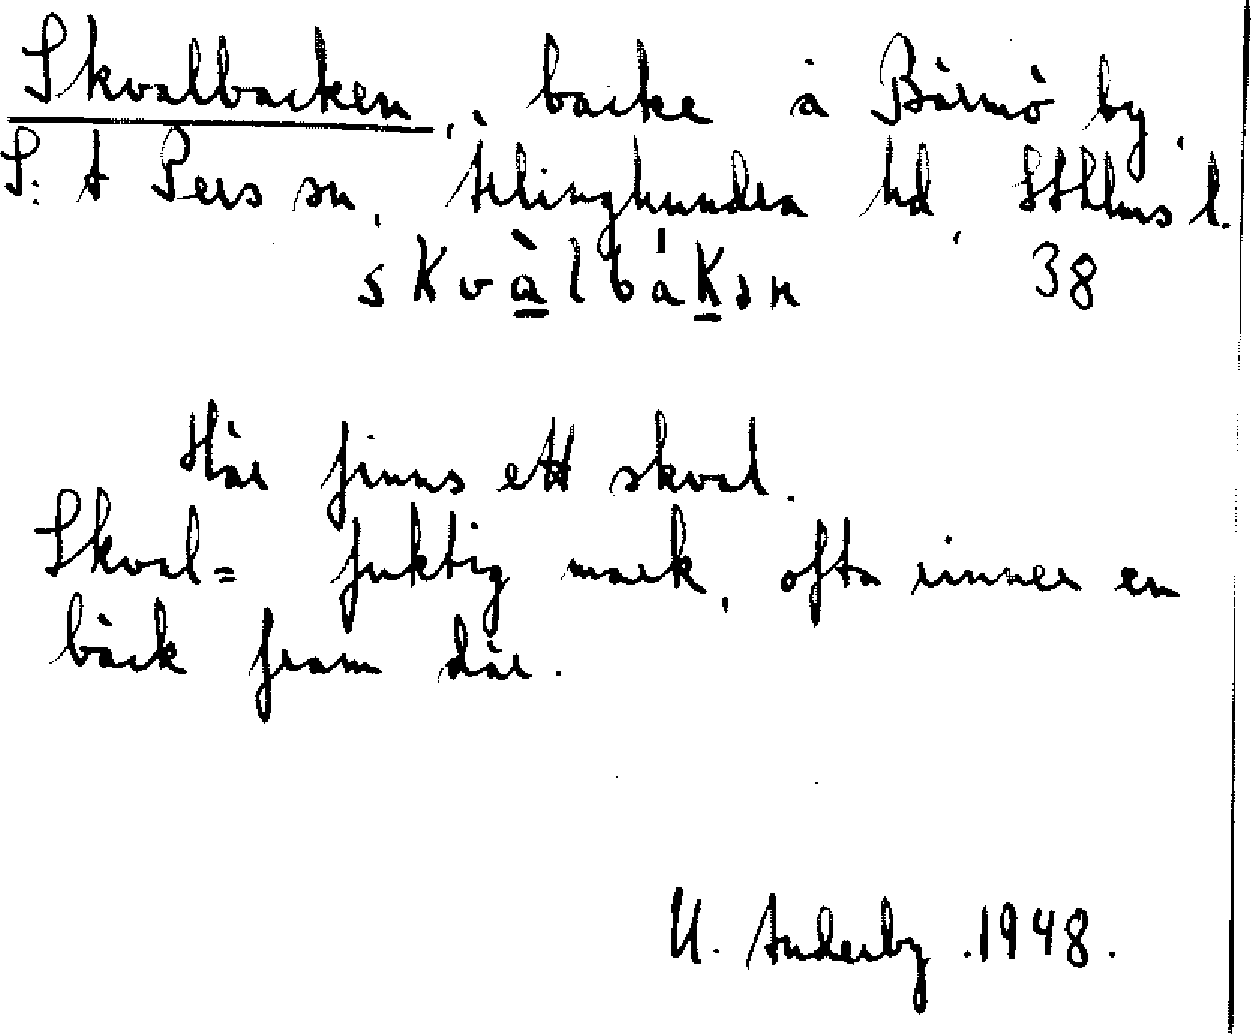 Skvalbacken, backe å Bärmö by,
S:t Pers sn, Ærlinghundra hd, Sthlms l.
skvàlbákən 38
Här finns ett skval.
Skval= fuktig mark, ofta rinner en
bäck fram där.
U. Anderby .1948.